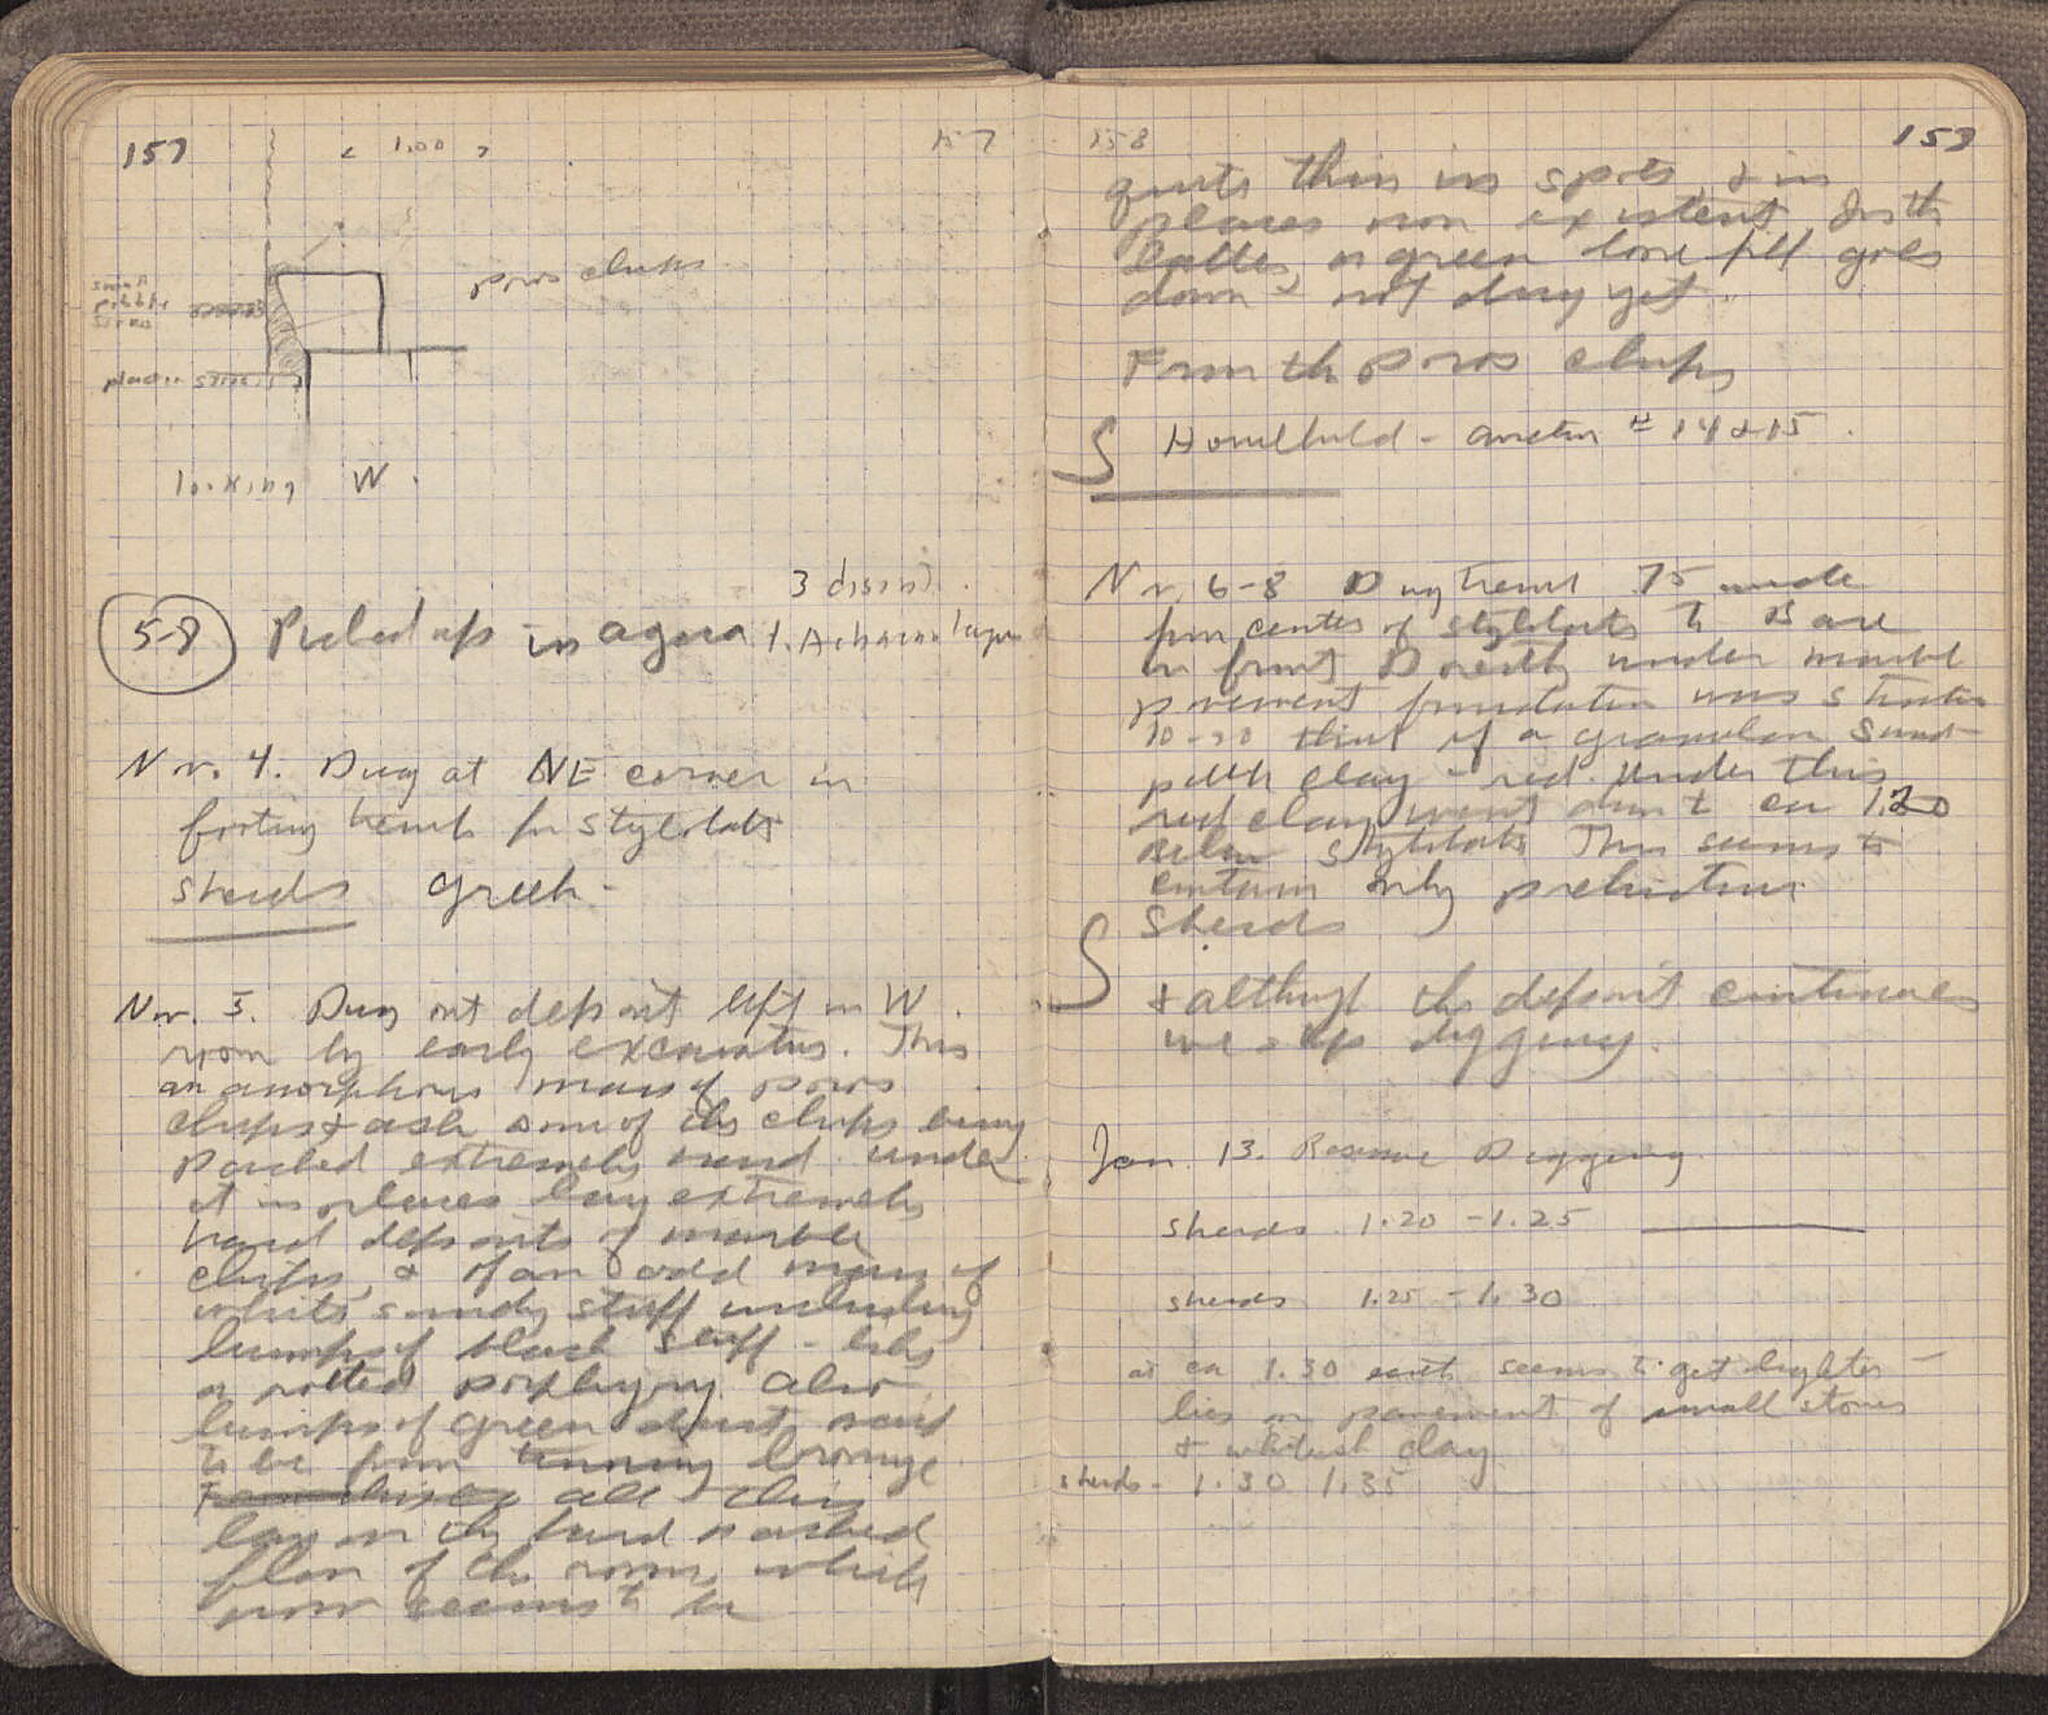 157
< 1.00 >
157
poros chips
small
pebble
stones
looking W.
3 disint.
5-8 Picked up in agora 1. Achaean league
Nov. 4. Dug at NE corner in
footing trench for stylobate
sherds Greek -
Nov. 5. Dug out deposit left in W.
room by early excavators. This
an amorphous mass of poros
chips & ash some of the chips being
packed extremely hard. under
it in places lay extremely
hard deposits of marble
chips, & of an odd mixture of
white sandy stuff including
lumps of black stuff - like
a rotted porphyry. Also
lumps of green dust, said
to be from bronze
all this
lay on the hard packed
floor of the room, which
now seems to be
158
158
quite thin in spots, & in
places non existent. In the
latter, a green line fill goes
down - not dug yet.
From the poros chips
S Household - # 14 & 15.
Nov. 6-8 Dug trench .75 wide
from center of stylobate to Base
in front. Directly under marble
pavement foundation was stratum
10-20 thick of a granular sand
clay - red. Under this
red clay went down to ca 1.20
below stylobate. This seems to
contain only prehistoric
S sherds
& although the deposit continues
we stop digging.
Jan. 13. Resume Digging
sherds 1.20 - 1.25
sherds 1.25 - 1.30
at ca 1.30 earth seems to get lighter -
lies on pavement of small stones
& whitish clay
sherds - 1.30 1.35